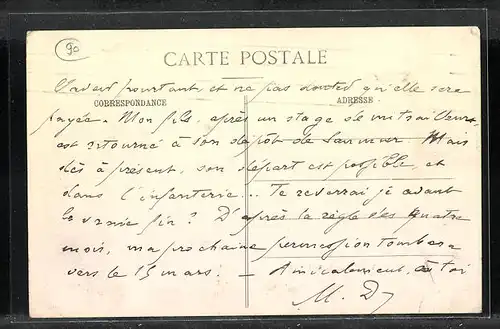 90
CARTE POSTALE
pourtant, et ne pas douter qu'elle sera
CORRESPONDANCE ADRESSE
payée. Mon fils, après un stage de mitrailleurs
est retourné à son dépôt de Saumur. Mais
dès à présent, son départ est possible, et
dans l'infanterie... Te reverrai je avant
la vraie fin? D'après la règle des quatre
mois, ma prochaine permission tombera
vers le 15 mars. — Amicalement, à toi
M. D